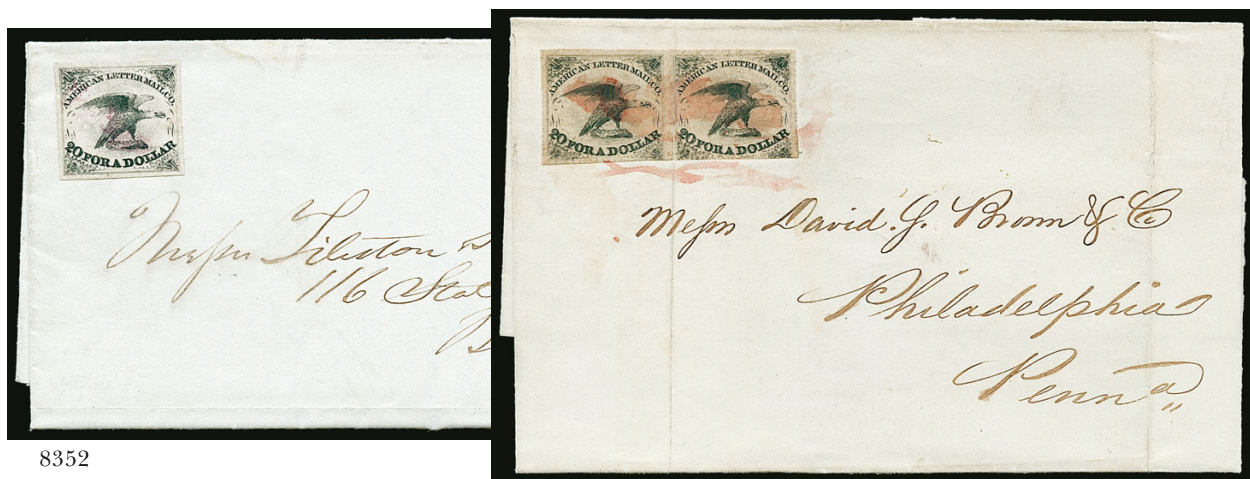 AMERICAN LETTER MAIL CO.
20 FOR A DOLLAR
Messrs Tileston &
116 Stat
B
8352
AMERICAN LETTER MAIL CO.
20 FOR A DOLLAR
AMERICAN LETTER MAIL CO.
20 FOR A DOLLAR
Messrs David. S. Brown & Co
Philadelphia
Penna